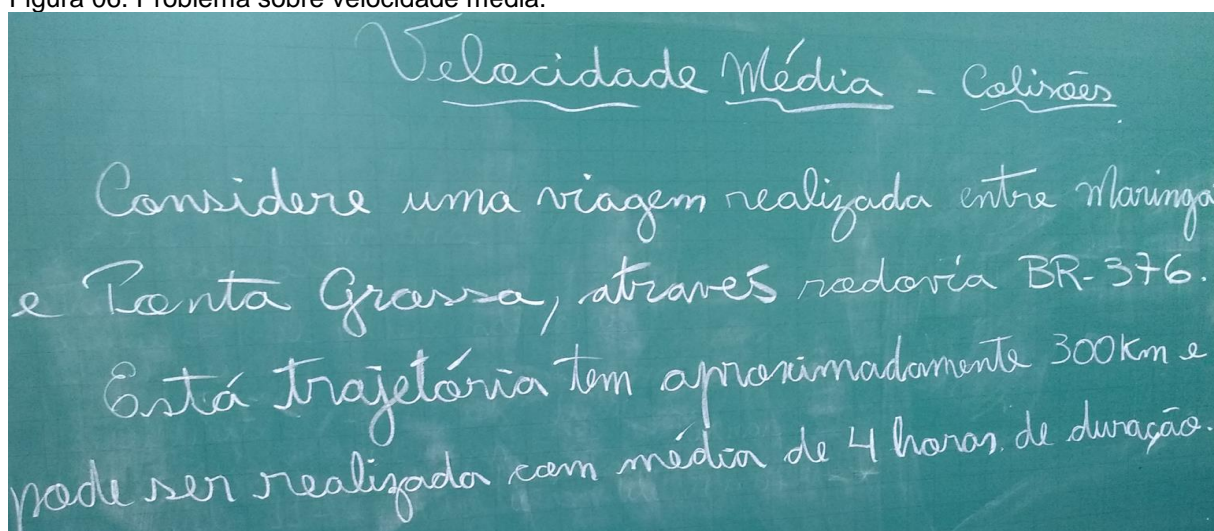 Figura 06: Problema sobre velocidade média.
Velocidade Média - Colisões
Considere uma viagem realizada entre Maringá
e Ponta Grossa, através rodovia BR-376.
Está trajetória tem aproximadamente 300 km e
pode ser realizada com média de 4 horas de duração.